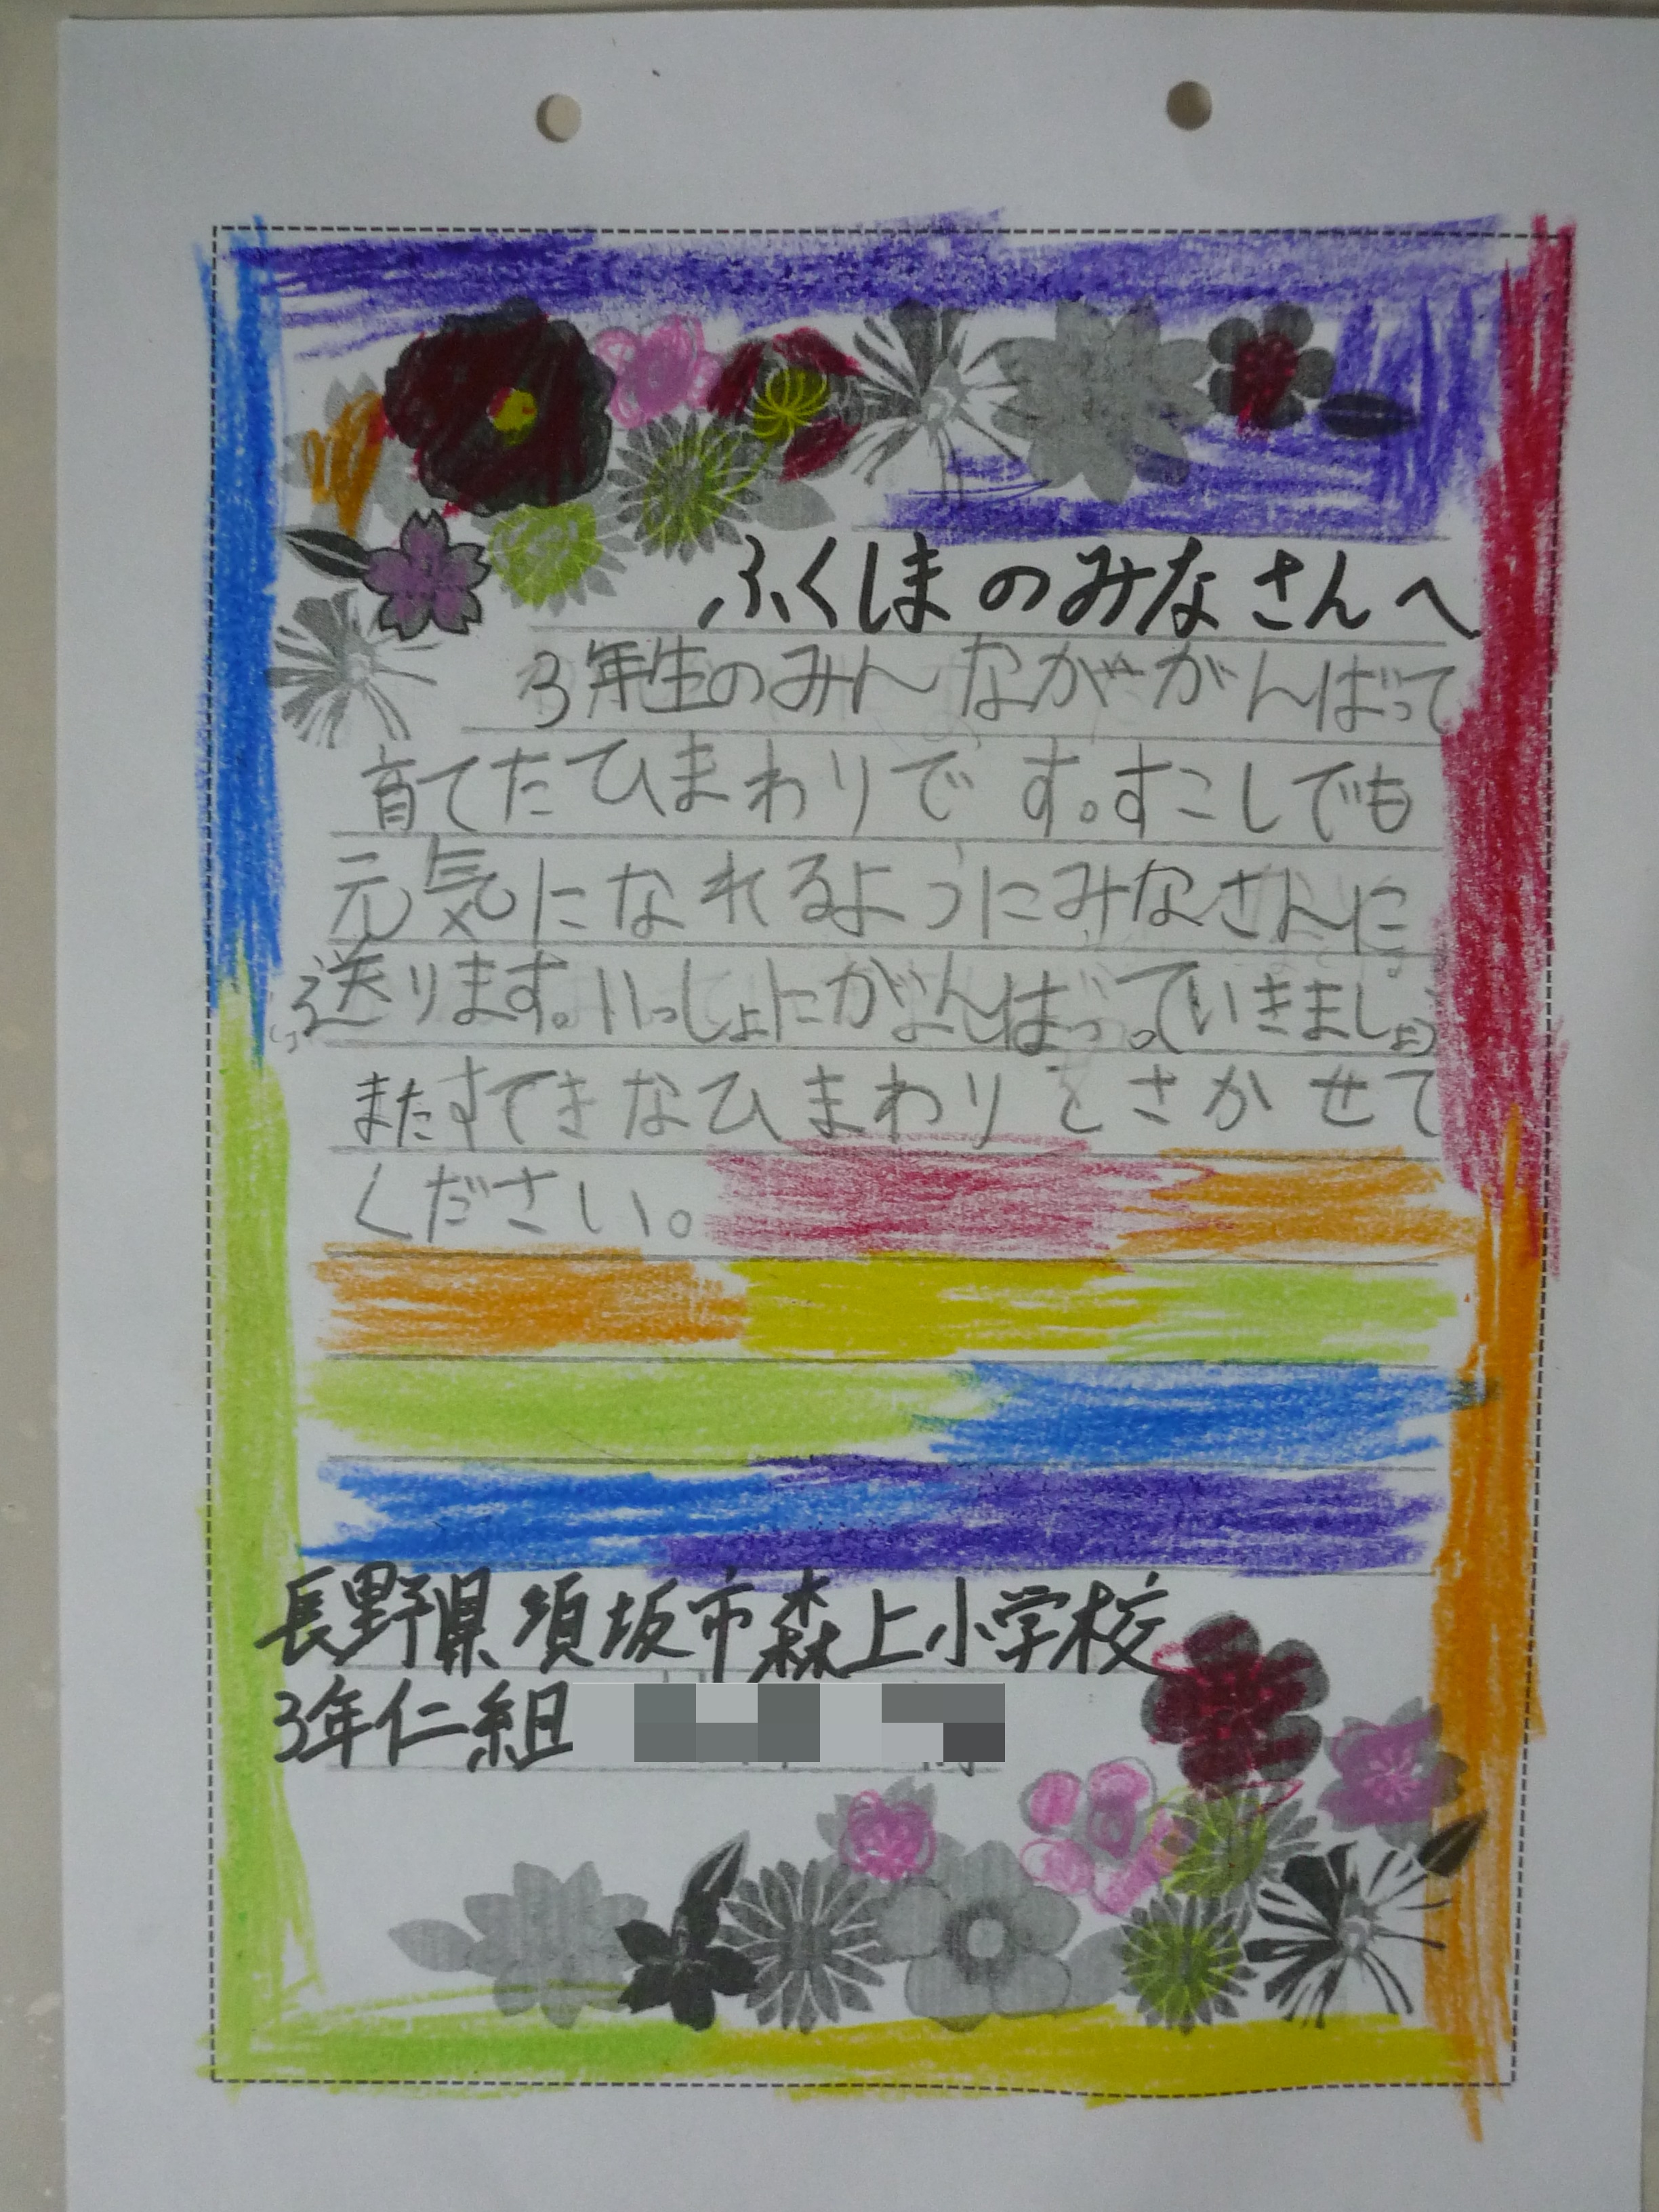 ふくしまのみなさんへ
3年生のみんなが”がんばって
育てたひまわりです。すこしでも
元気になれるようにみなさんに
送ります。いっしょにがんばっていきましょう
またすてきなひまわりをさかせて
ください。
長野県須坂市森上小学校
3年仁組